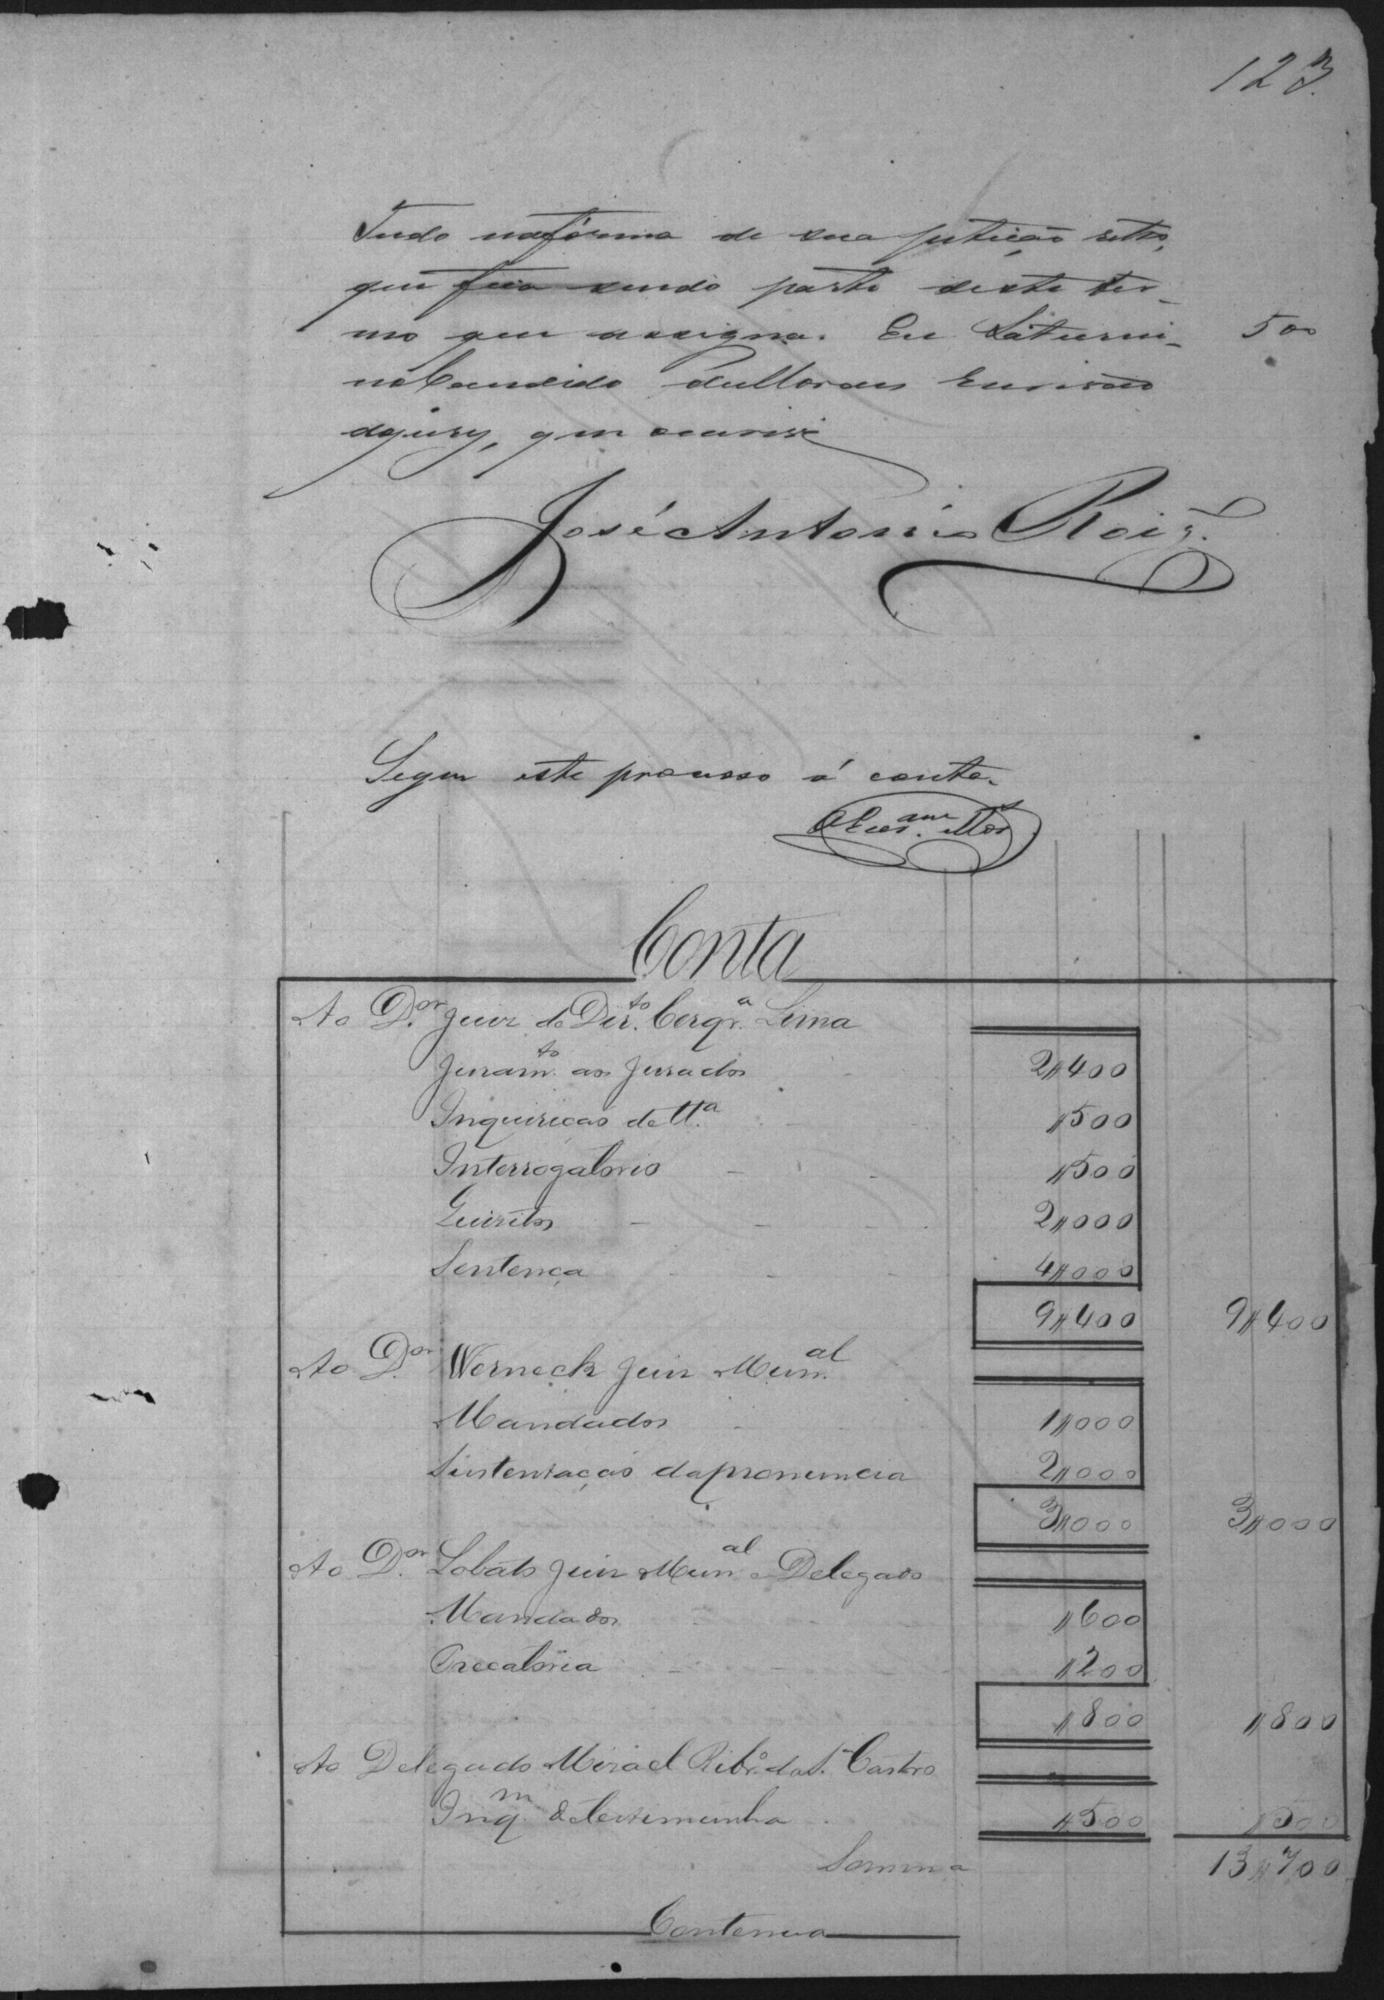 123.
Tudo na fórma de sua petição retro,
que fica sendo parte deste ter-
mo que assigna. Eu Saturni- 500
no Candido Escrivão
do jury, que escrevi
José Antonio Roiz.
Segue este processo á conta.
Conta
Ao Dor. Juiz de Dirto. Cerqra. Lima
Juramto. aos Jurados 2$400
Inquirição de tta. $500
Interrogatorio $500
Quisitos 2$000
Sentença 4$000
9$400 9$400
Ao Dor. Werneck Juiz Munal.
Mandados 1$000
Sustentação da pronuncia 2$000
3$000 3$000
Ao Dor. Lobato Juiz Munal. e Delegado
Mandados $600
Precatoria $200
$800 $800
Ao Delegado Misael Ribro. da Sa. Castro
Inqm. de testimunha $500 $500
Somma 13$700
Continua